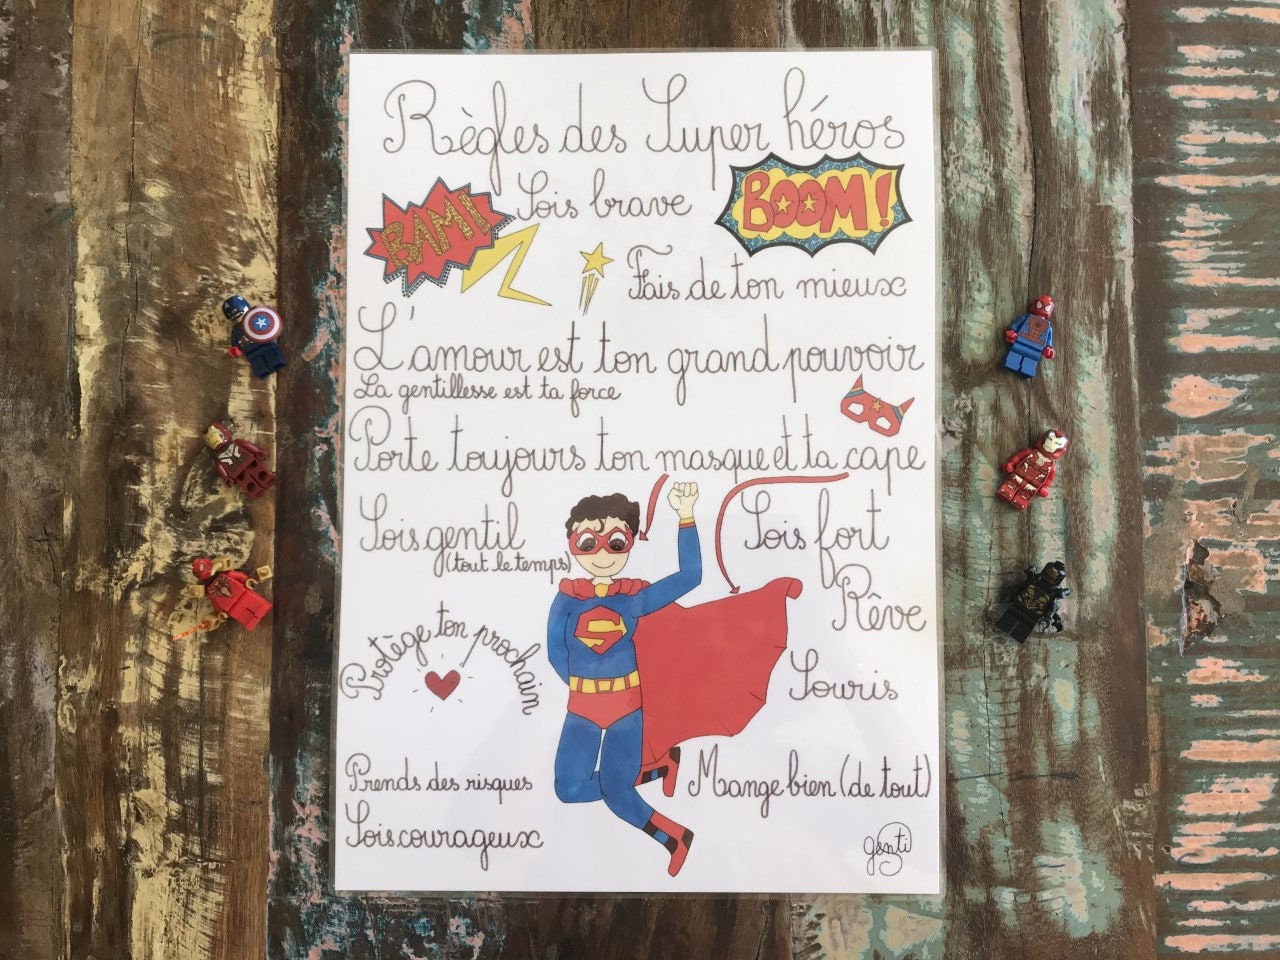 Règles des Super héros
BAM!
Sois brave
BOOM!
Fais de ton mieux
L'amour est ton grand pouvoir
La gentillesse est ta force
Porte toujours ton masque et ta cape
Sois gentil
(tout le temps)
Sois fort
Rêve
S
Protège ton prochain
Souris
Prends des risques
Mange bien (de tout)
Sois courageux
genti